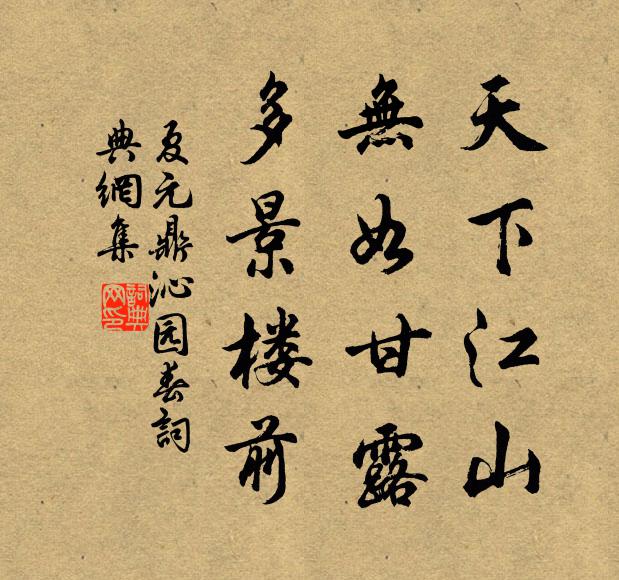 天下江山
無如甘露
多景楼前
夏元鼎沁园春詞
典網集
詞典网印